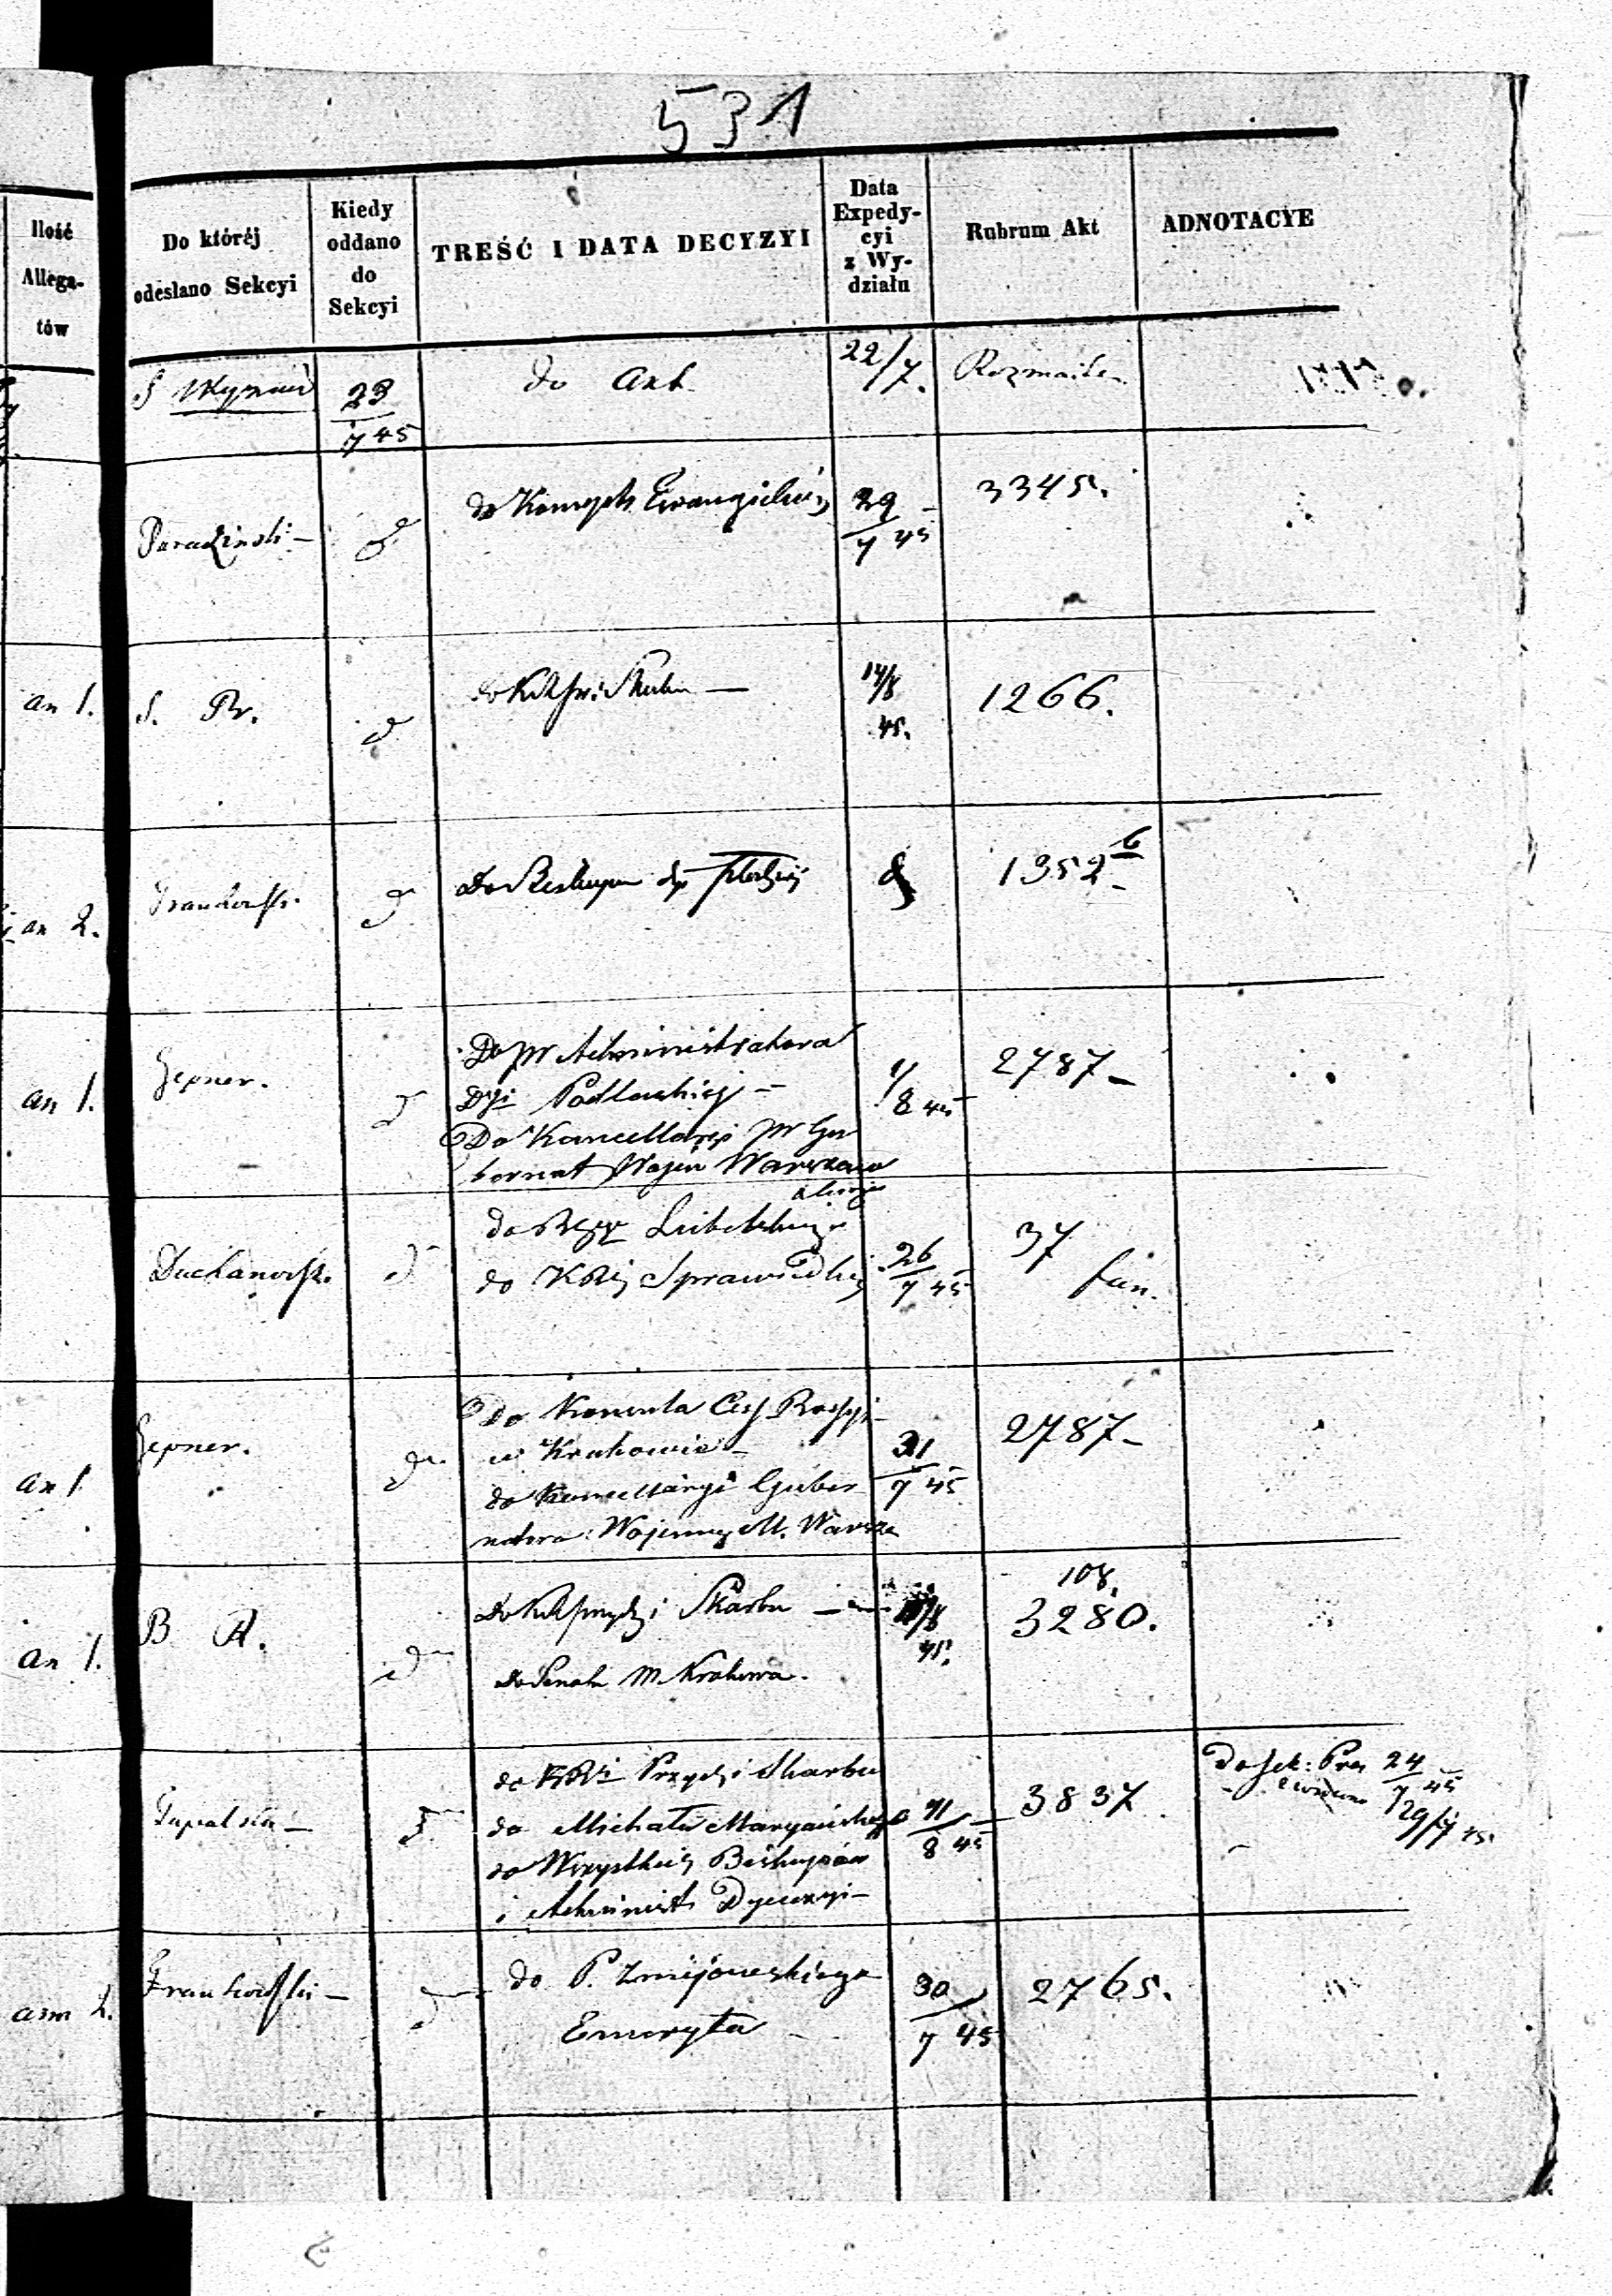 531
Ilość
Allega-
tów
Do któréj
odesłano Sekcyi
Kiedy
oddano
do
Sekcyi
TREŚĆ I DATA DECYZYI
Data
Expedy-
cyi
z Wy-
działu
Rubrum Akt
ADNOTACYE
S
23
7 45
do Akt
22/7.
Rozmaite
do Ewangielic
29
7 45
3345.
an 1.
S. Pr.
do Skarbu —
14/8
45.
1266.
an 2.
Frankowski
Do Biskupa
1352 6
an 1.
Hepner.
Do JW Administratora
Dyi Podlaskiej —
Do Kancellaryi JW Gu
bernat Wojen Warszaw
1/
8 45
2787 —
Duchanowski
do Lubelskiego
do KRSj Sprawiedliw
26
7 45
37
an 1
Hepner.
do Konsula Ces Rossyi
w Krakowie —
do Kancellaryi Guber
natora Wojenneg M. Warsza
31
7 45
2787 —
an 1.
B
Do Przych i Skarbu —
Do Senatu M. Krakowa.
/8
45.
108.
3280.
do KRS Przych i Skarbu
do Michała Maryańskiego
do Wszystkich Biskupów
i Administ Dyecezyi —
11
8 45
3837
Do Sek: Pra 24
7 45
29/7 45.
ann 2.
Frankowski —
do P. Zmijowskiego
Emeryta
30
7 45
2765.